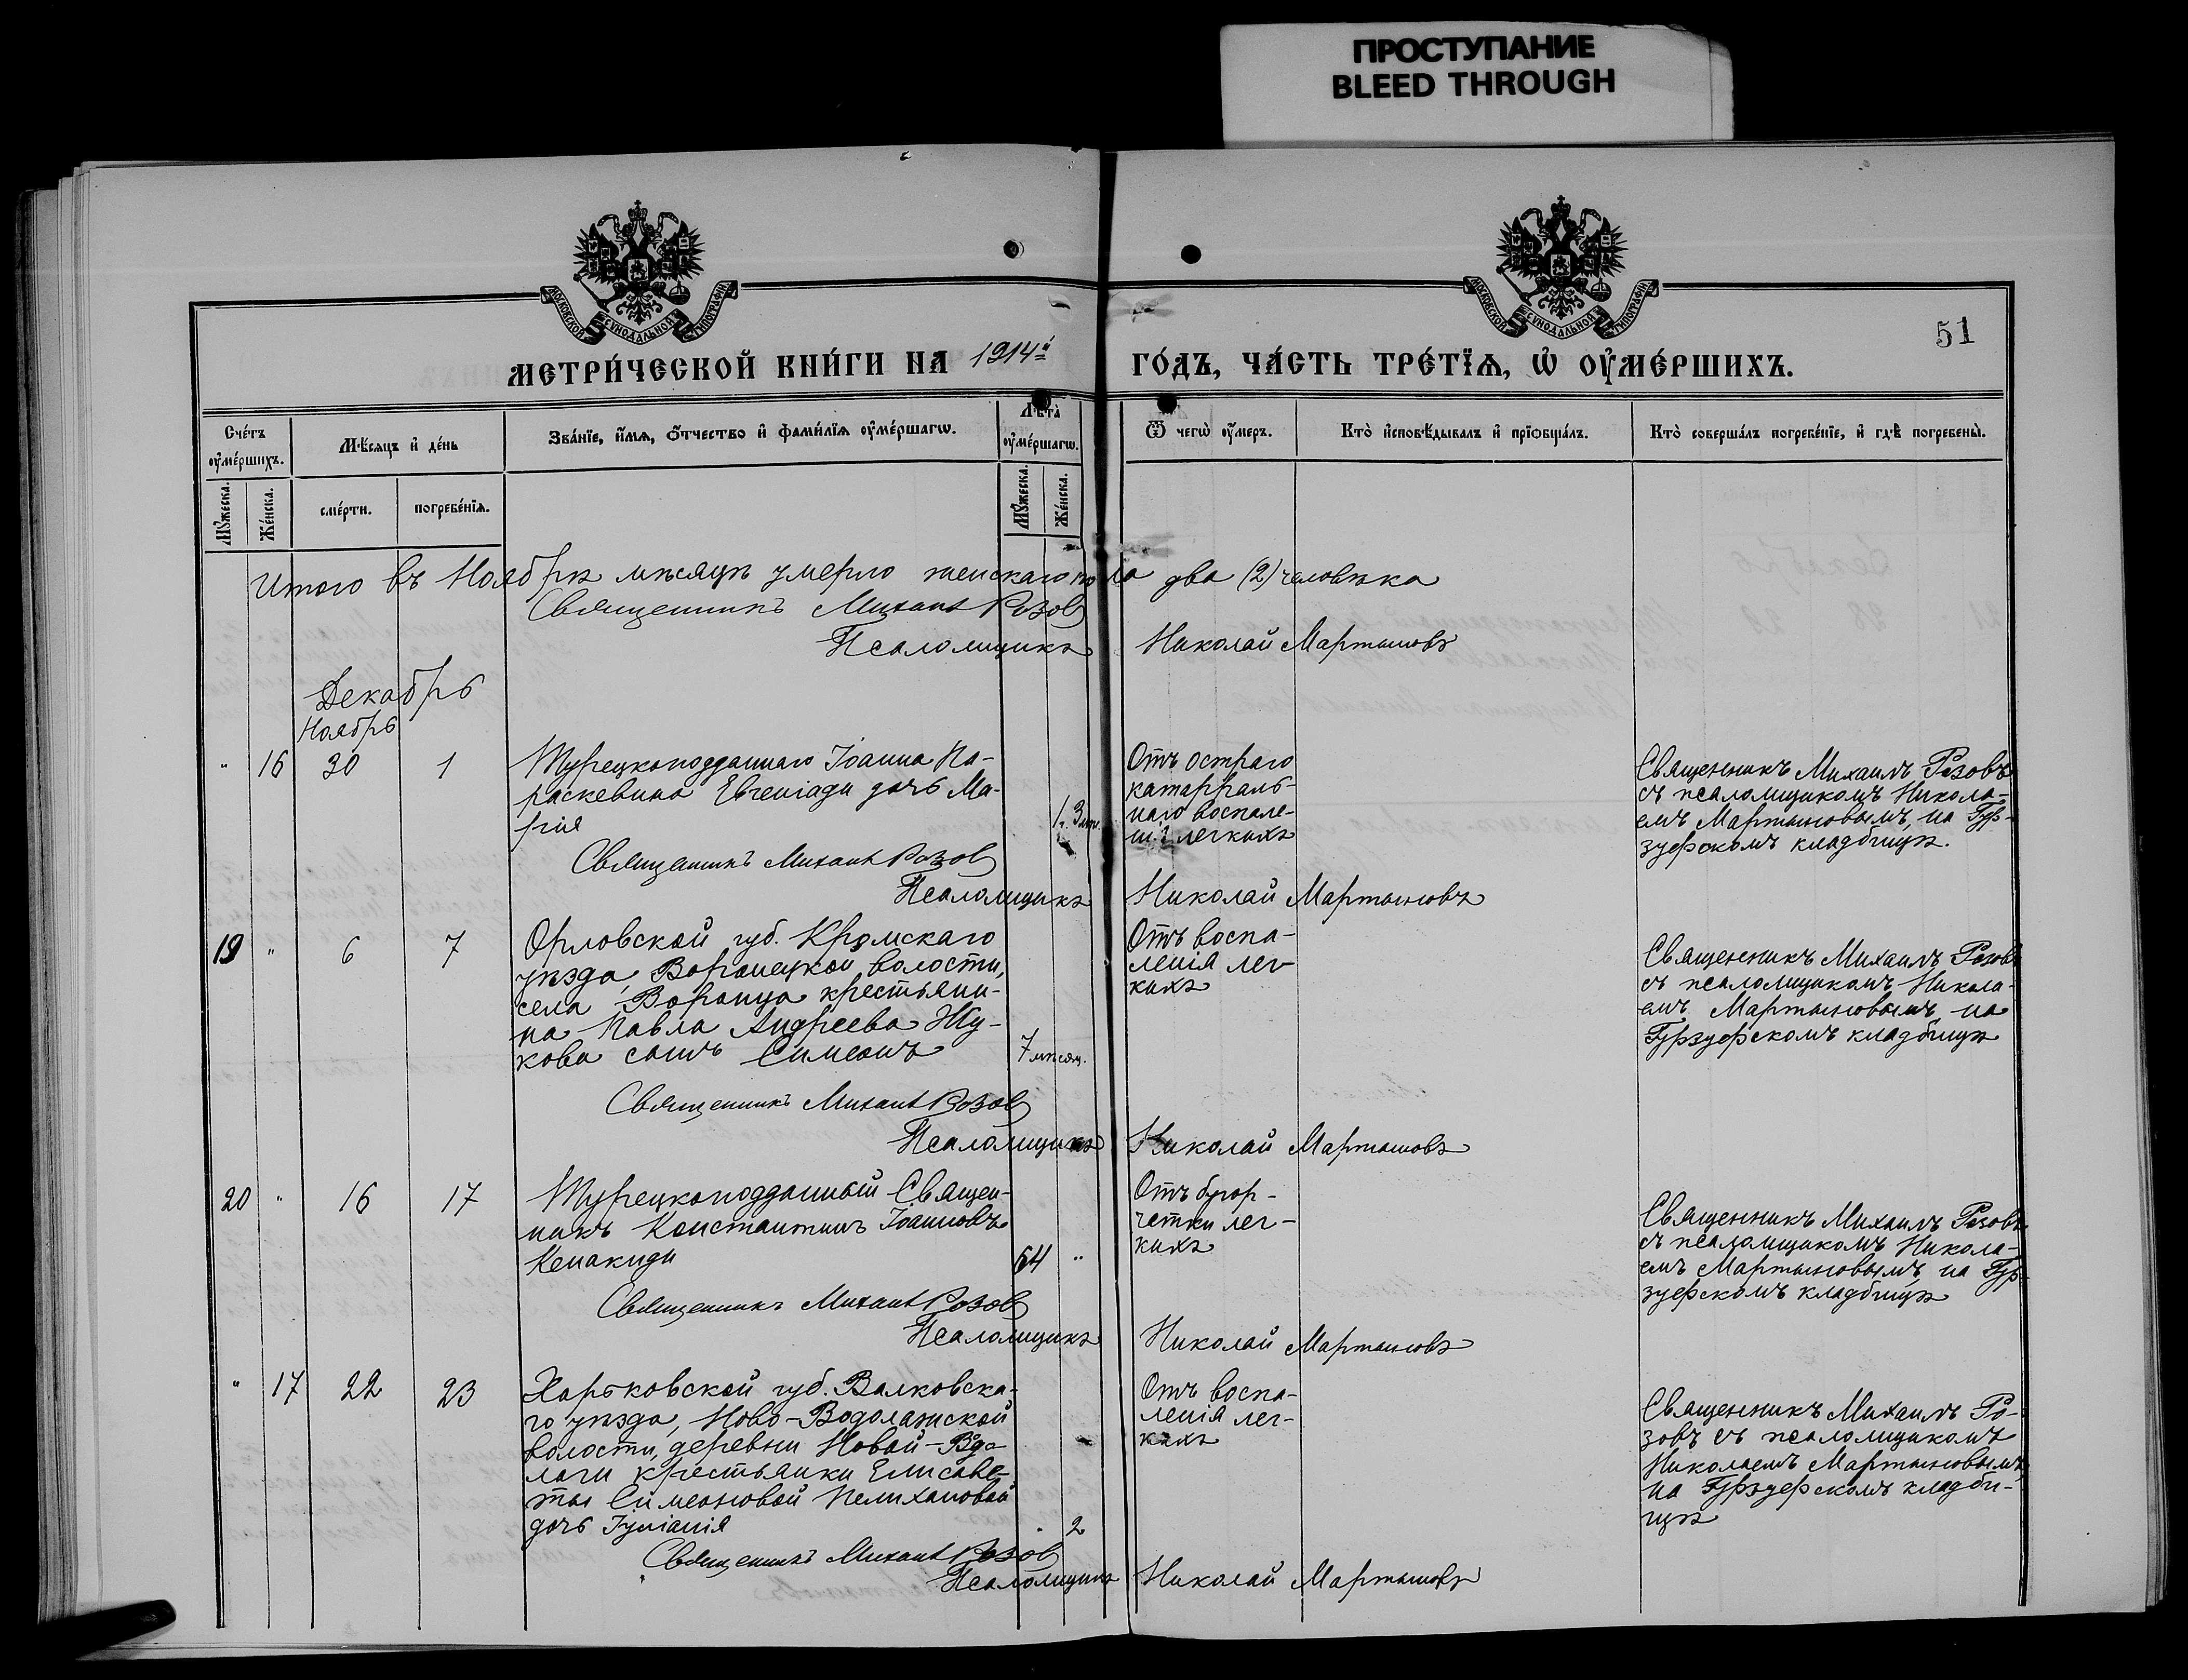 ПРОСТУПАНИЕ
BLEED THROUGH
МОСКОВСКОЙ СѴНОДАЛЬНОЙ ТИПОГРАФІИ
МОСКОВСКОЙ СѴНОДАЛЬНОЙ ТИПОГРАФІИ
51
МЕТРИ́ЧЕСКОЙ КНИ́ГИ НА 1914й ГО́ДЪ, ЧА́СТЬ ТРЕ́ТЇѦ, Ѡ҆ ОУ҆МЕ́РШИХЪ.
Сче́тъ оу҆ме́ршихъ.
Мꙋ́жеска.
Же́нска.
Мѣ́сяцъ и҆ де́нь
сме́рти.
погребе́нїѧ.
Зва́нїе, и҆́мѧ, ѻ҆́тчество и҆ фами́лїѧ оу҆ме́ршагѡ.
Лѣ́та̀ оу҆ме́ршагѡ.
Мꙋ́жеска.
Же́нска.
Ѿ чегѡ̀ оу҆́меръ.
Кто̀ и҆сповѣ́дывалъ и҆ прїѡбща́лъ.
Кто̀ соверша́лъ погребе́нїе, и҆ гдѣ̀ погребены̀.
Итого въ Ноябрѣ мѣсяцѣ умерло женскаго пола два (2) человѣка
Священникъ Михаилъ Розовъ
Псаломщикъ Николай Мартыновъ
Декабрь
Ноябрь
" 16 30 1
Турецкоподданнаго Іоанна Па-
раскевина Евгеніади дочь Ма-
рія
1 г. 3 мѣс.
Отъ остраго
катарраль-
наго воспале-
нія легкихъ
Священникъ Михаилъ Розовъ
съ псаломщикомъ Никола-
емъ Мартыновымъ, на Гур-
зуфскомъ кладбищѣ.
Священникъ Михаилъ Розовъ
Псаломщикъ Николай Мартыновъ
19 " 6 7
Орловской губ. Кромскаго
уѣзда, Воронецкой волости,
села Воронца крестьяни-
на Павла Андреева Жу-
кова сынъ Симеонъ
7 мѣсяц.
Отъ воспа-
ленія лег-
кихъ
Священникъ Михаилъ Розовъ
съ псаломщикомъ Никола-
емъ Мартыновымъ на
Гурзуфскомъ кладбищѣ
Священникъ Михаилъ Розовъ
Псаломщикъ Николай Мартыновъ
20 " 16 17
Турецкоподданный Священ-
никъ Константинъ Іоанновъ
Кенакиди
64 "
Отъ бугор-
чатки лег-
кихъ
Священникъ Михаилъ Розовъ
съ псаломщикомъ Никола-
емъ Мартыновымъ, на Гур-
зуфскомъ кладбищѣ
Священникъ Михаилъ Розовъ
Псаломщикъ Николай Мартыновъ
" 17 22 23
Харьковской губ. Валковска-
го уѣзда, Ново-Водолажской
волости, деревни Новой-Водо-
лаги крестьянки Елисаве-
ты Симеоновой Пелихановой
дочь Іуліанія
" 2
Отъ воспа-
ленія лег-
кихъ
Священникъ Михаилъ Ро-
зовъ съ псаломщикомъ
Николаемъ Мартыновымъ,
на Гурзуфскомъ кладби-
щѣ
Священникъ Михаилъ Розовъ
Псаломщикъ Николай Мартыновъ